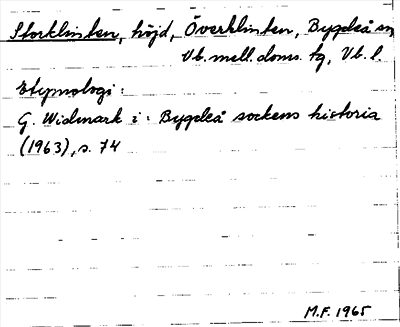 Storklinten, höjd, Överklinten, Bygdeå sn
Vb. mell. doms. tg, Vb. l.
Etymologi:
G. Widmark i: Bygdeå sockens historia
(1963), s. 74
M.F. 1965